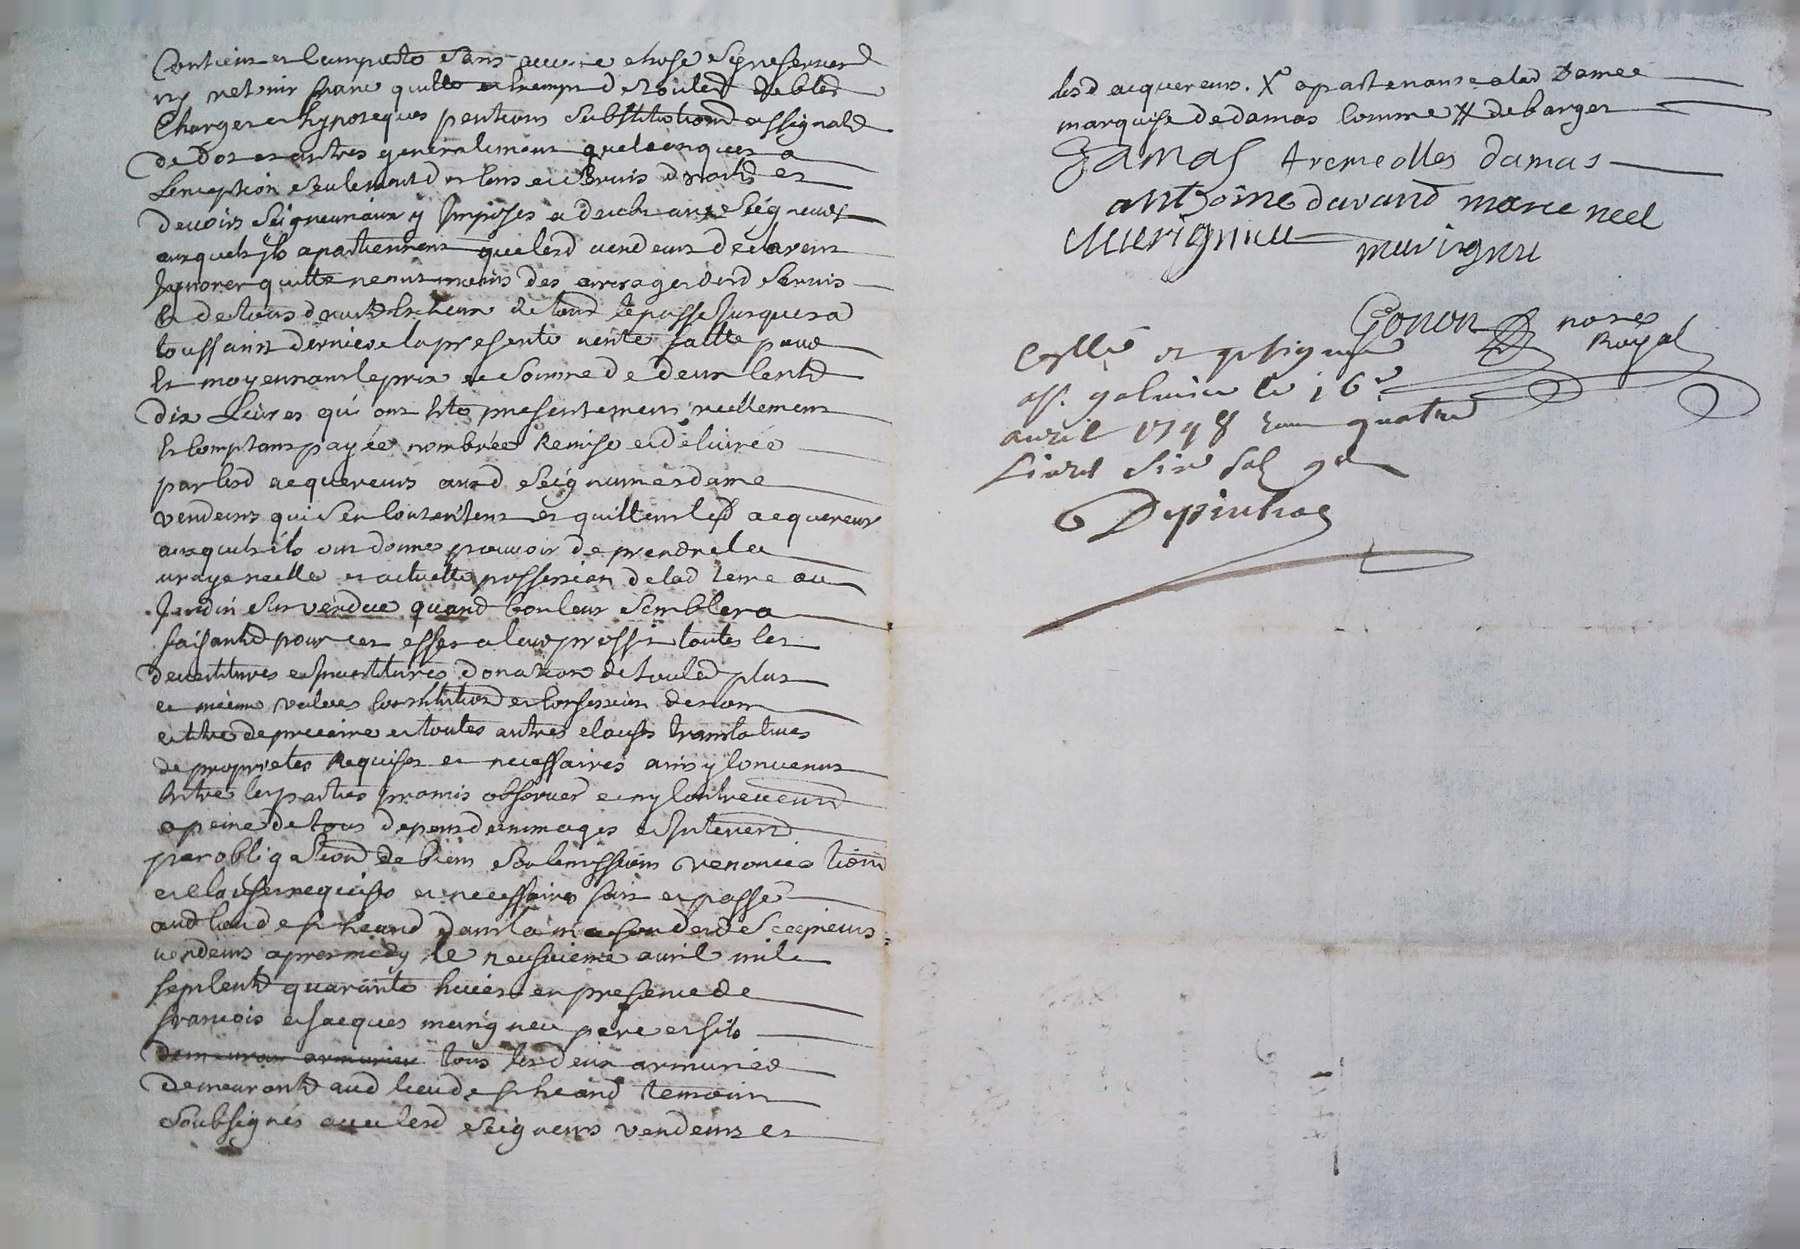 Contient et Comporte sans aucune chose sy reserver
ny retenir franc quitte et exempt de toutes debtes
Charges et hypoteques pentions Substitutions assignats
de Dot et autres generalement quelconques a
Lexception seulement des Cens et servis droits et
devoirs Seigneuriaux y Imposes a deub aux Seigneurs
auxquels ils apartiennent que lesd vendeurs declarent
Ignorer quitte neantmoins des arrerages desd servis
Et de tous droits Escheus de tout le passe Jusques a
toussaint derniere la presente vente faitte pour
Et moyennant le prix et Somme de deux Cents
dix Livres qui ont Ete presentement reellement
Et Comptant payée nombrée Remise et délivrée
par lesd acquereurs auxd Seigneur et dame
vendeurs qui sen Contentent et quittent lesd acquereurs
auxquels ils ont donne pouvoir de prendre la
vraye reelle et actuelle possession de lad terre ou
Jardin sus vendue quand bon leur semblera
faisants pour cet effet a leur proffit toutes les
devestitures et Investitures donation de toutes plus
et mieux values Constitution et Confession de nom
et titre de precaire et toutes autres clauses translatives
de proprietes Requises et necessaires ainsy Convenus
Entre les parties promis observer et ny Contrevenir
a peine de tous depens dommages et Interets
par obligation de biens soubmissions renonciations
et clauses requises et necessaires fait et passé
aud lieu de dans la maison desd Seigneurs
vendeurs apres midy le neufvieme avril mil
sept cents quarante huict en presence de
francois et Jacques murigneu pere et fils
demeurant armurier tous les deux armuries
demeurants aud lieu de temoins
soubsignes avec lesd Seigneurs vendeurs et
lesd acquereurs. X apartenante a lad Dame
marquise de damas comme # de barges
Damas tremeolles damas
anthoine durand marie neel
Murigneu
murigneu
Gonon nore
Royal
Conllé et
st. galmier le 16e
avril 1748 quatre
Livres six sols
Depinhac